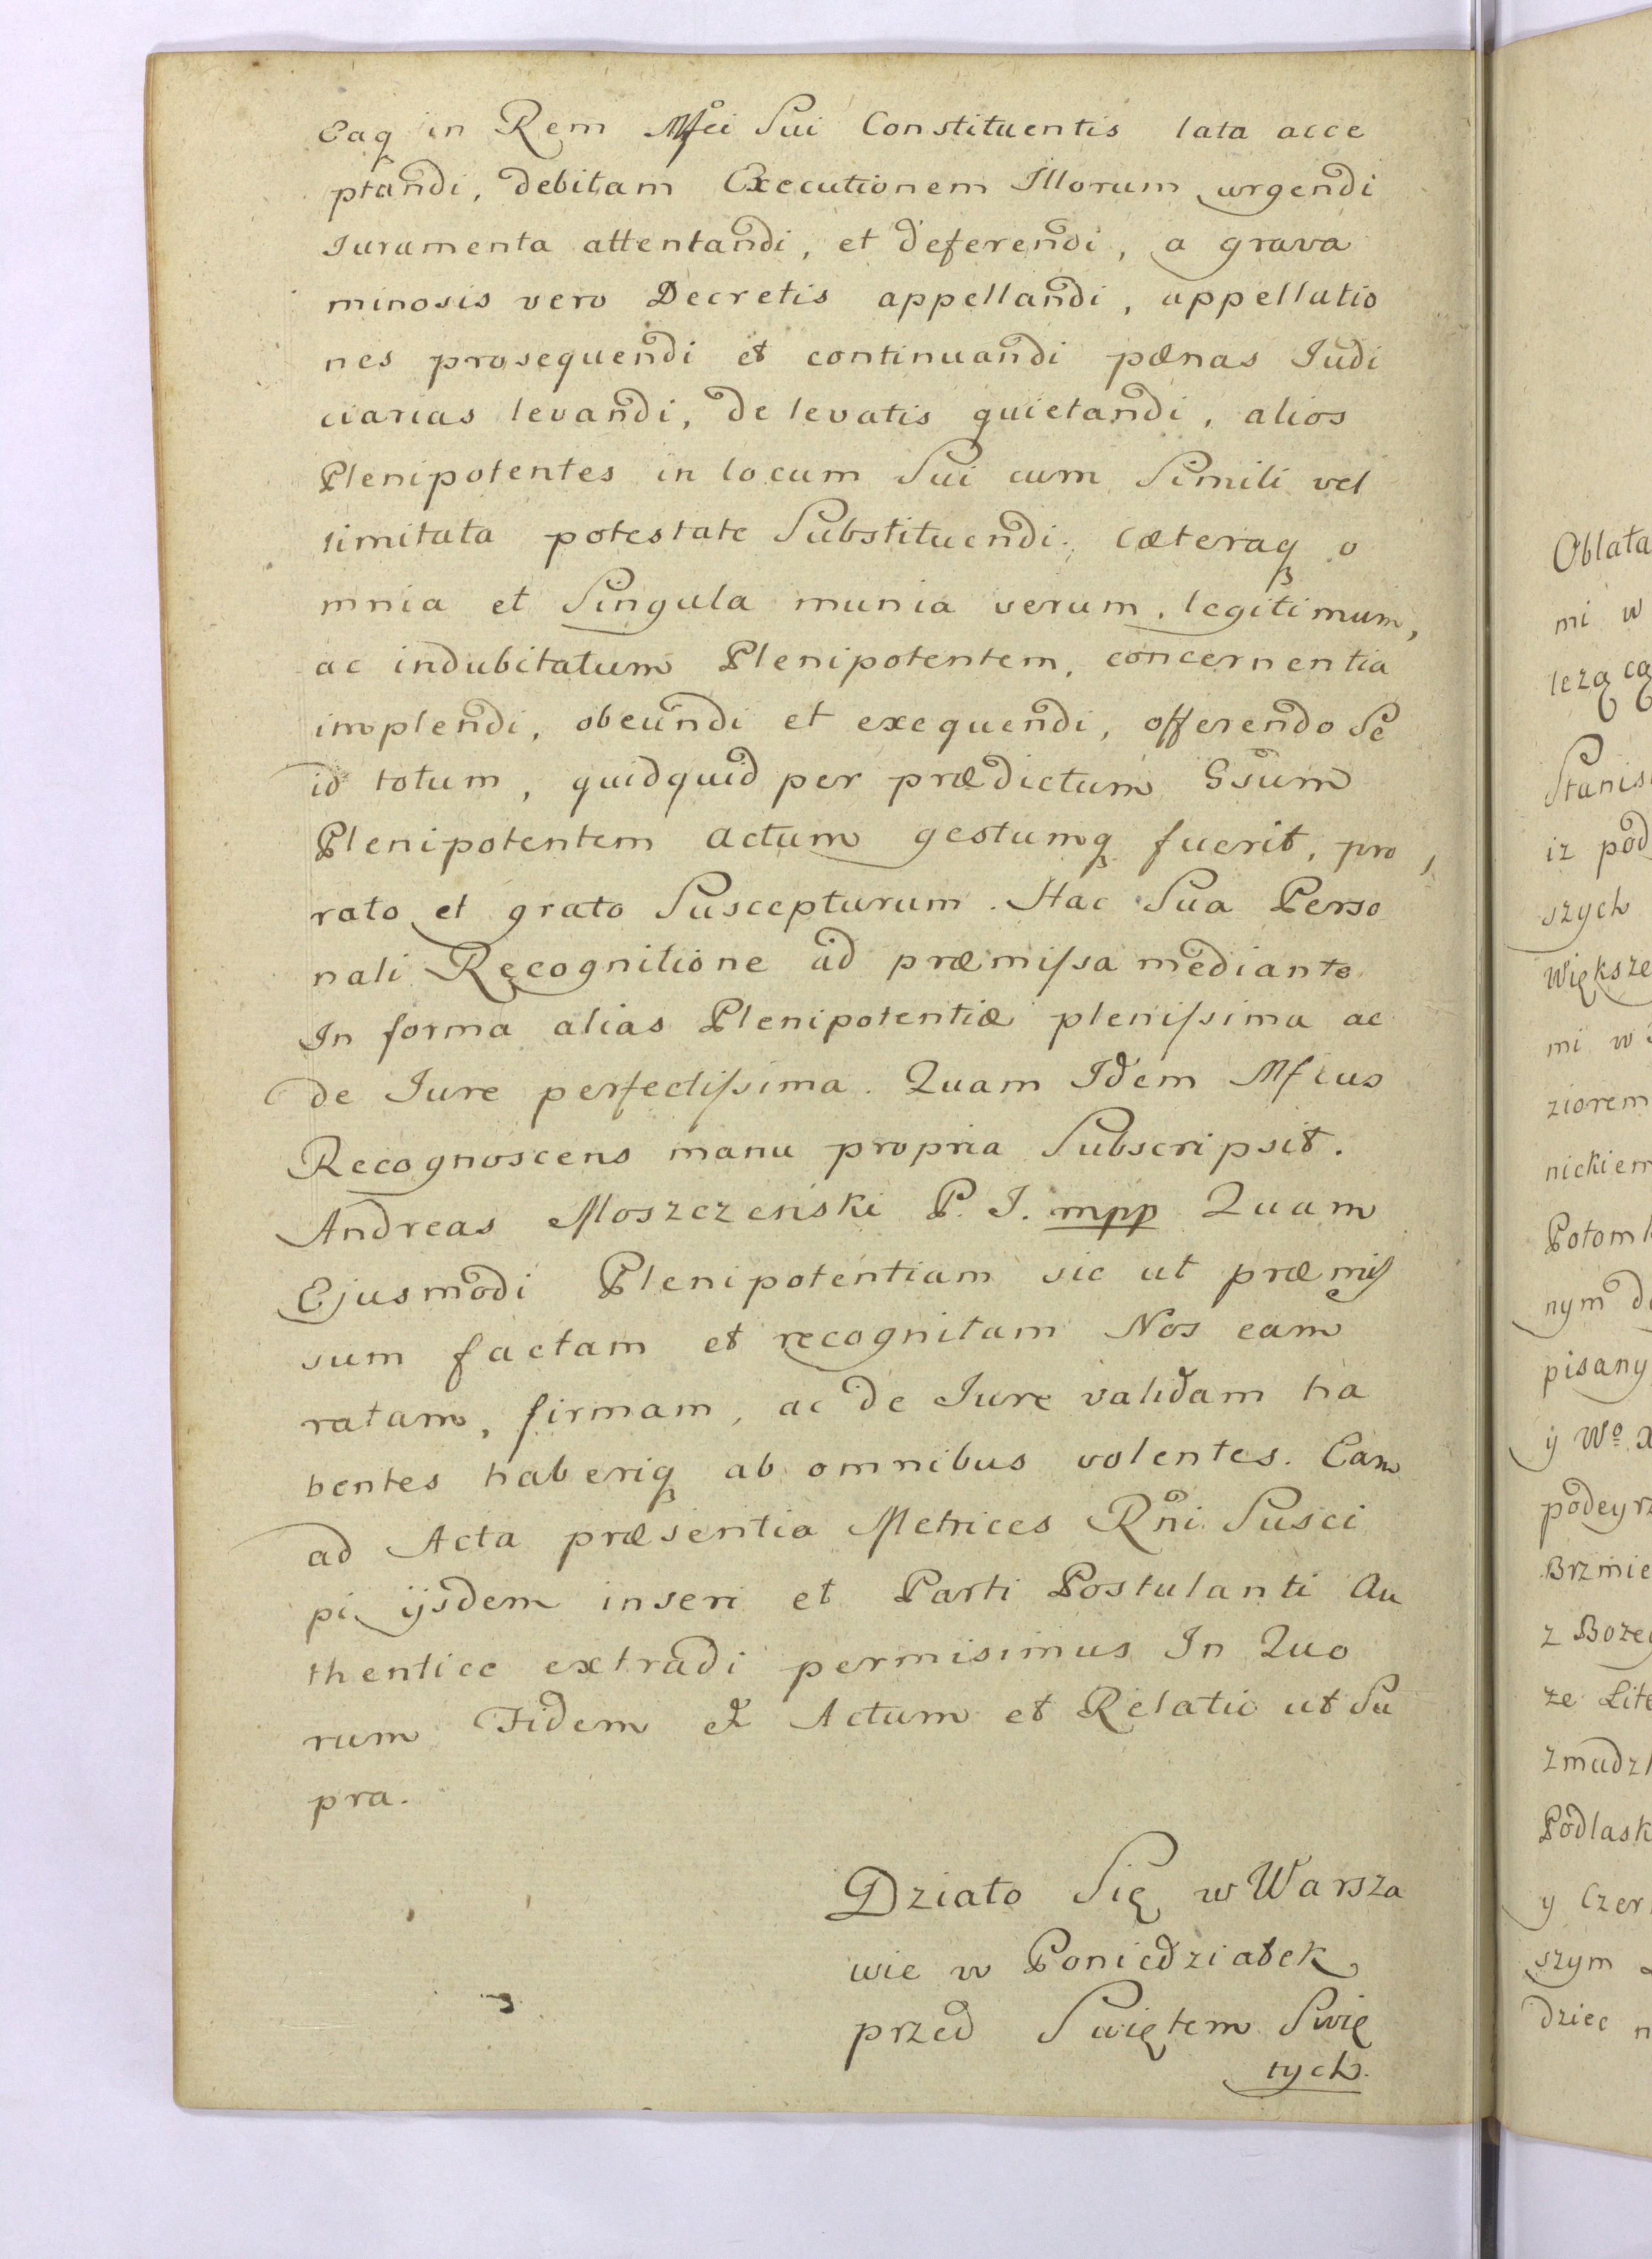 Eaq in Rem Mfci Sui Constituentis lata acce
ptandi, debitam Executionem Illorum urgendi
Iuramenta attentandi, et deferendi, a grava
minosis vero Decretis appellandi, appellatio
nes prosequendi et continuandi pænas Iudi
ciarias levandi, de levatis quietandi, alios
Plenipotentes in locum Sui cum Simili vel
limitata potestate Substituendi. Cæteraq o
mnia et Singula munia verum, legitimum,
ac indubitatum Plenipotentem, concernentia
implendi, obeundi et exequendi, offerendo Se
id totum, quidquid per prædictum Gsum
Plenipotentem actum gestumq fuerit, pro
rato et grato Suscepturum. Hac Sua Perso
nali Recognitione ad præmissa mediante
In forma alias Plenipotentiæ plenissima ac
de Iure perfectissima. Quam Idem Mfcus
Recognoscens manu propria Subscripsit.
Andreas Moszczeński P. J. mpp Quam
Ejusmodi Plenipotentiam sic ut præmis
sum factam et recognitam Nos eam
ratam, firmam, ac de Iure validam ha
bentes haberiq ab omnibus volentes. Eam
ad Acta præsentia Metrices Rni Susci
pi, ijsdem inseri et Parti Postulanti Au
thentice extradi permisimus In Quo
rum Fidem & Actum et Relatio ut Su
pra.
Działo Się w Warsza
wie w Poniedziałek
przed Swiętem Swię
tych.
Oblata
mi w
lezącą
Stanis
iz pod
szych
Większe
mi w
ziorem
nickiem
Potomk
nym d
pisany
ÿ Wo
podeyrz
Brzmie
z Bozey
ze Lite
zmudz
Podlask
y Czer
szym
dziec n